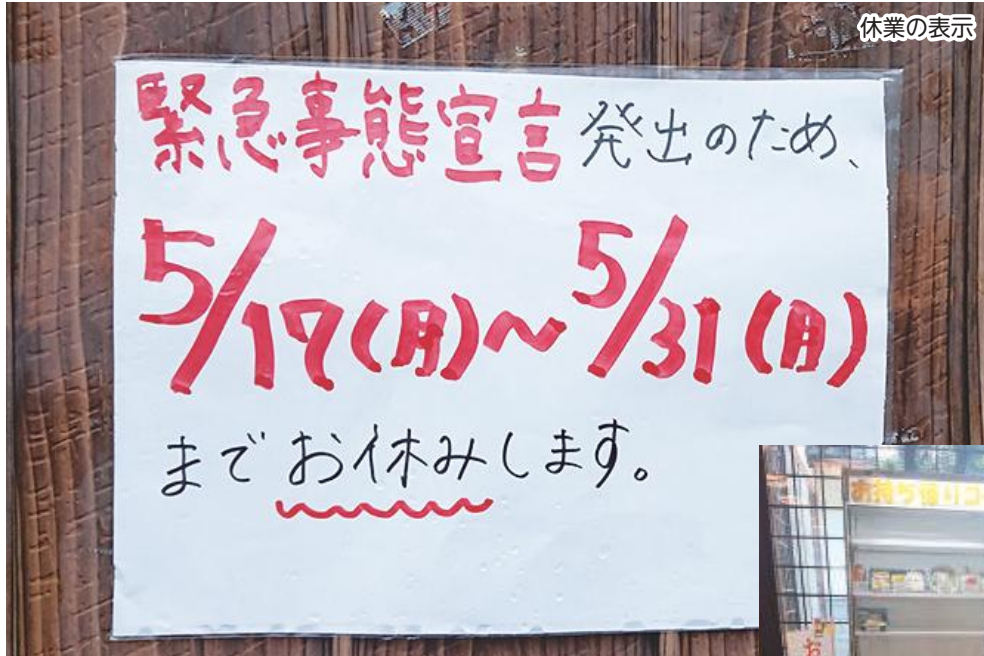 休業の表示
緊急事態宣言発出のため、
5/17(月)～5/31(月)
までお休みします。
お持ち帰りコ
お